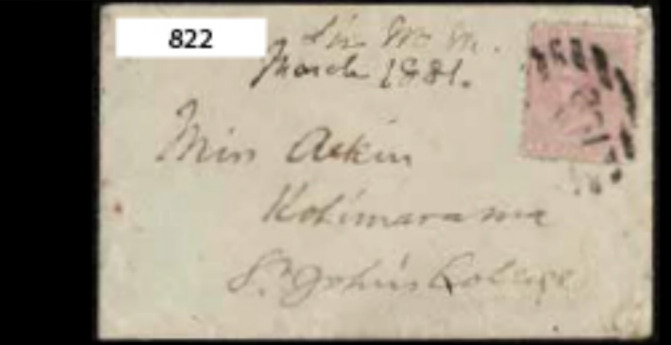 822
Sir Wm M.
March 1881.
Miss Atkin
Kohimarama
St John's College